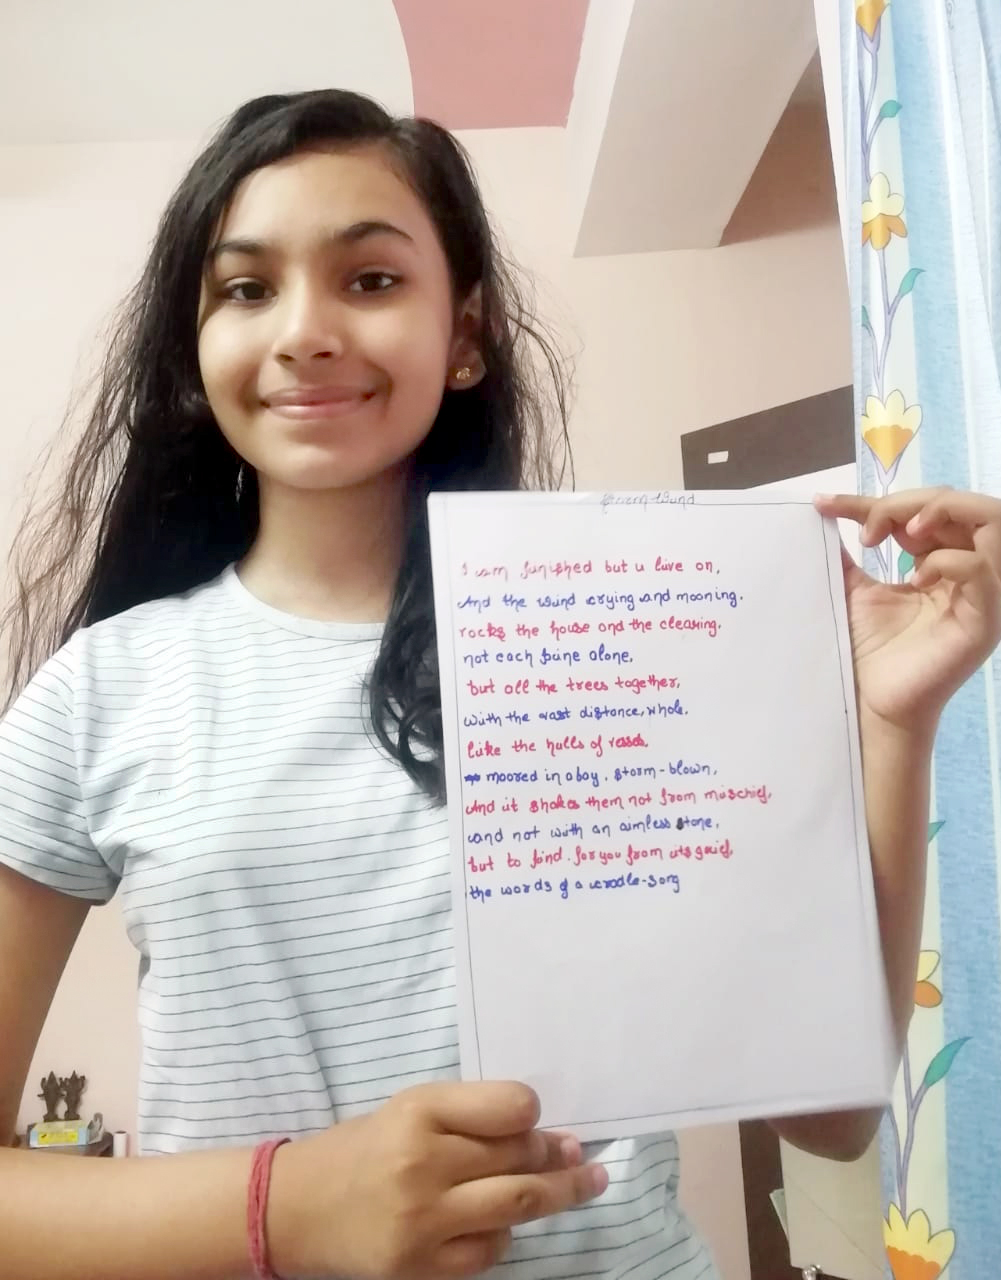 I am funished but u live on,
And the wind crying and mooning.
rocks the house and the clearing.
not each pine alone,
but all the trees together,
with the vast distance, whole.
Like the hulls of vessels,
moored in a bay. storm-blown,
And it shakes them not from mischief,
and not with an aimless tone,
but to find. for you from its grief,
the words of a cradle-song